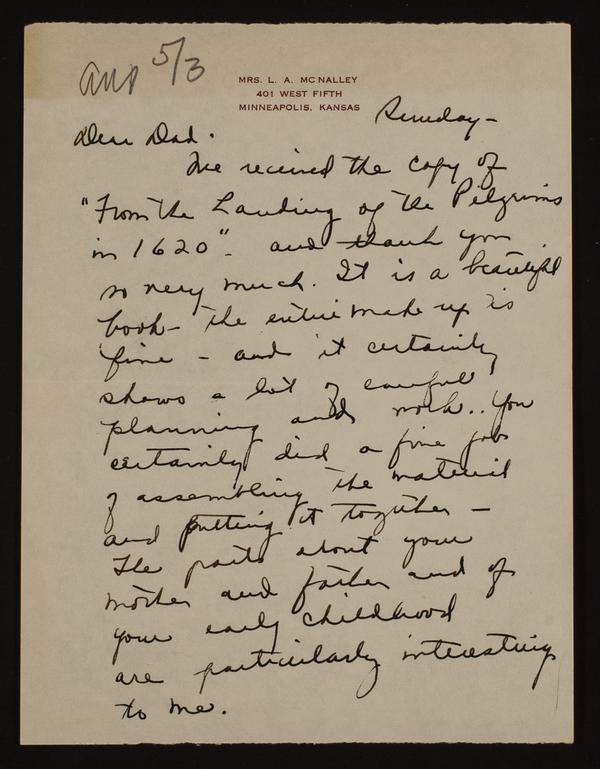 ans 5/3
MRS. L. A. MCNALLEY
401 WEST FIFTH
MINNEAPOLIS, KANSAS
Sunday-
Dear Dad.
We received the copy of
"From the Landing of the Pilgrims
in 1620". and thank you
so very much. It is a beautiful
book- the entire make up is
fine - and it certainly
shows a lot of careful
planning and work.. You
certainly did a fine job
of assembling the material
and putting it together -
The parts about your
mother and father and of
your early childhood
are particularly interesting
to me.